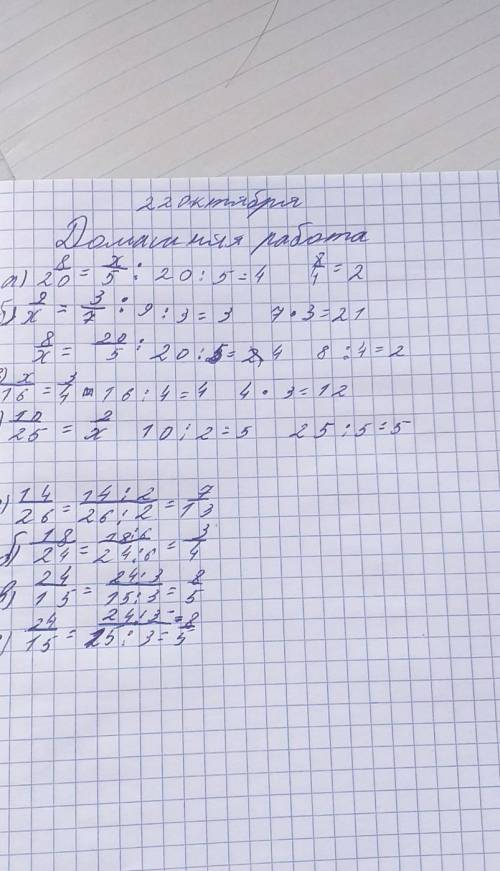 22 октября
Домашняя работа
а) 8/20 = x/5 : 20 : 5 = 4 8/4 = 2
б) 9/x = 3/7 : 9 : 3 = 3 7 · 3 = 21
8/x = 20/5 : 20 : 5 = 4 8 : 4 = 2
x/16 = 3/4 - 16 : 4 = 4 4 · 3 = 12
) 10/25 = 2/x 10 : 2 = 5 25 : 5 = 5
) 14/26 = 14 : 2/26 : 2 = 7/13
б 18/24 = 18 : 6/24 : 6 = 3/4
в) 24/15 = 24 : 3/15 : 3 = 8/5
) 24/15 = 24 : 3/15 : 3 = 8/5